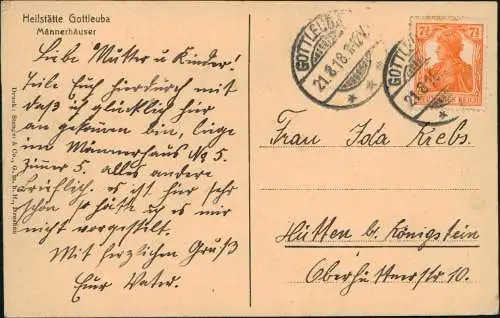 Heilstätte Gottleuba
Männerhäuser
Liebe Mutter u Kinder!
Teile Euch hierdurch mit
daß ich glücklich hier
an gekommen bin, liege
im Männerhaus No 5.
Zimmer 5. alles andere
brieflich. es ist hier sehr
schön so hätte ich es mir
nicht vorgestellt.
Mit herzlichen Gruß
Eur Vater.
GOTTLEUBA
21.8.18
GOTTLEUBA
21.8.18
7½ 7½
DEUTSCHES REICH
Frau Ida Krebs.
Hütten b. Königstein
Oberhüttenstr 10.